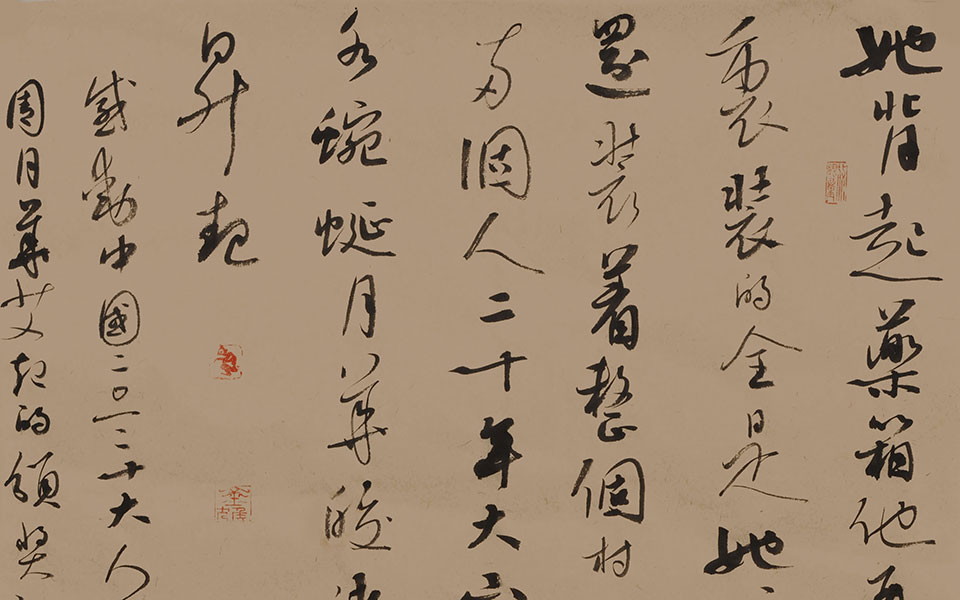 她背起藥箱他
裏裝的全是她
還裝着整個村
兩個人二十年大
水蜿蜒月華皎
昇起
感動中國二〇一二十大人
周月華艾起的頒獎